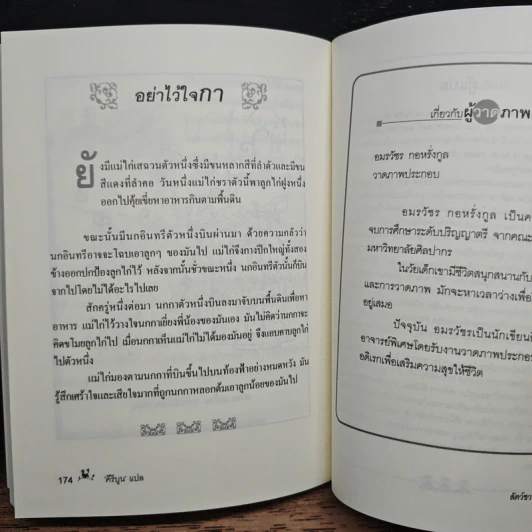 อย่าไว้ใจกา
ยังมีแม่ไก่เสฉวนตัวหนึ่งซึ่งมีขนหลากสีที่ลำตัวและมีขน
สีแดงที่ลำคอ วันหนึ่งแม่ไก่ชราตัวนี้พาลูกไก่ฝูงหนึ่ง
ออกไปคุ้ยเขี่ยหาอาหารกินตามพื้นดิน
ขณะนั้นมีนกอินทรีตัวหนึ่งบินผ่านมา ด้วยความกลัวว่า
นกอินทรีอาจจะโฉบเอาลูกๆ ของมันไป แม่ไก่จึงกางปีกใหญ่ทั้งสอง
ข้างออกปกป้องลูกไก่ไว้ หลังจากนั้นชั่วขณะหนึ่ง นกอินทรีตัวนั้นก็บิน
จากไปโดยไม่ได้อะไรไปเลย
สักครู่หนึ่งต่อมา นกกาตัวหนึ่งบินลงมาจับบนพื้นดินเพื่อหา
อาหาร แม่ไก่ไว้วางใจนกกาเยี่ยงพี่น้องของมันเอง มันไม่คิดว่านกกาจะ
คิดขโมยลูกไก่ไป เมื่อนกกาเห็นแม่ไก่ไม่ได้มองมันอยู่ จึงแอบคาบลูกไก่
ไปตัวหนึ่ง
แม่ไก่มองตามนกกาที่บินขึ้นไปบนท้องฟ้าอย่างหมดหวัง มัน
รู้สึกเศร้าใจและเสียใจมากที่ถูกนกกาหลอกต้มเอาลูกน้อยของมันไป
174 'ศิริบุน' แปล
เกี่ยวกับผู้วาดภาพ
อมรวัชร กอหรั่งกูล
วาดภาพประกอบ
อมรวัชร กอหรั่งกูล เป็นค
จบการศึกษาระดับปริญญาตรี จากคณะ
มหาวิทยาลัยศิลปากร
ในวัยเด็กเขามีชีวิตสนุกสนานกับ
และการวาดภาพ มักจะหาเวลาว่างเพื่
อยู่เสมอ
ปัจจุบัน อมรวัชรเป็นนักเขียน
อาจารย์พิเศษโดยรับงานวาดภาพประกอ
อดิเรกเพื่อเสริมความสุขให้ชีวิต